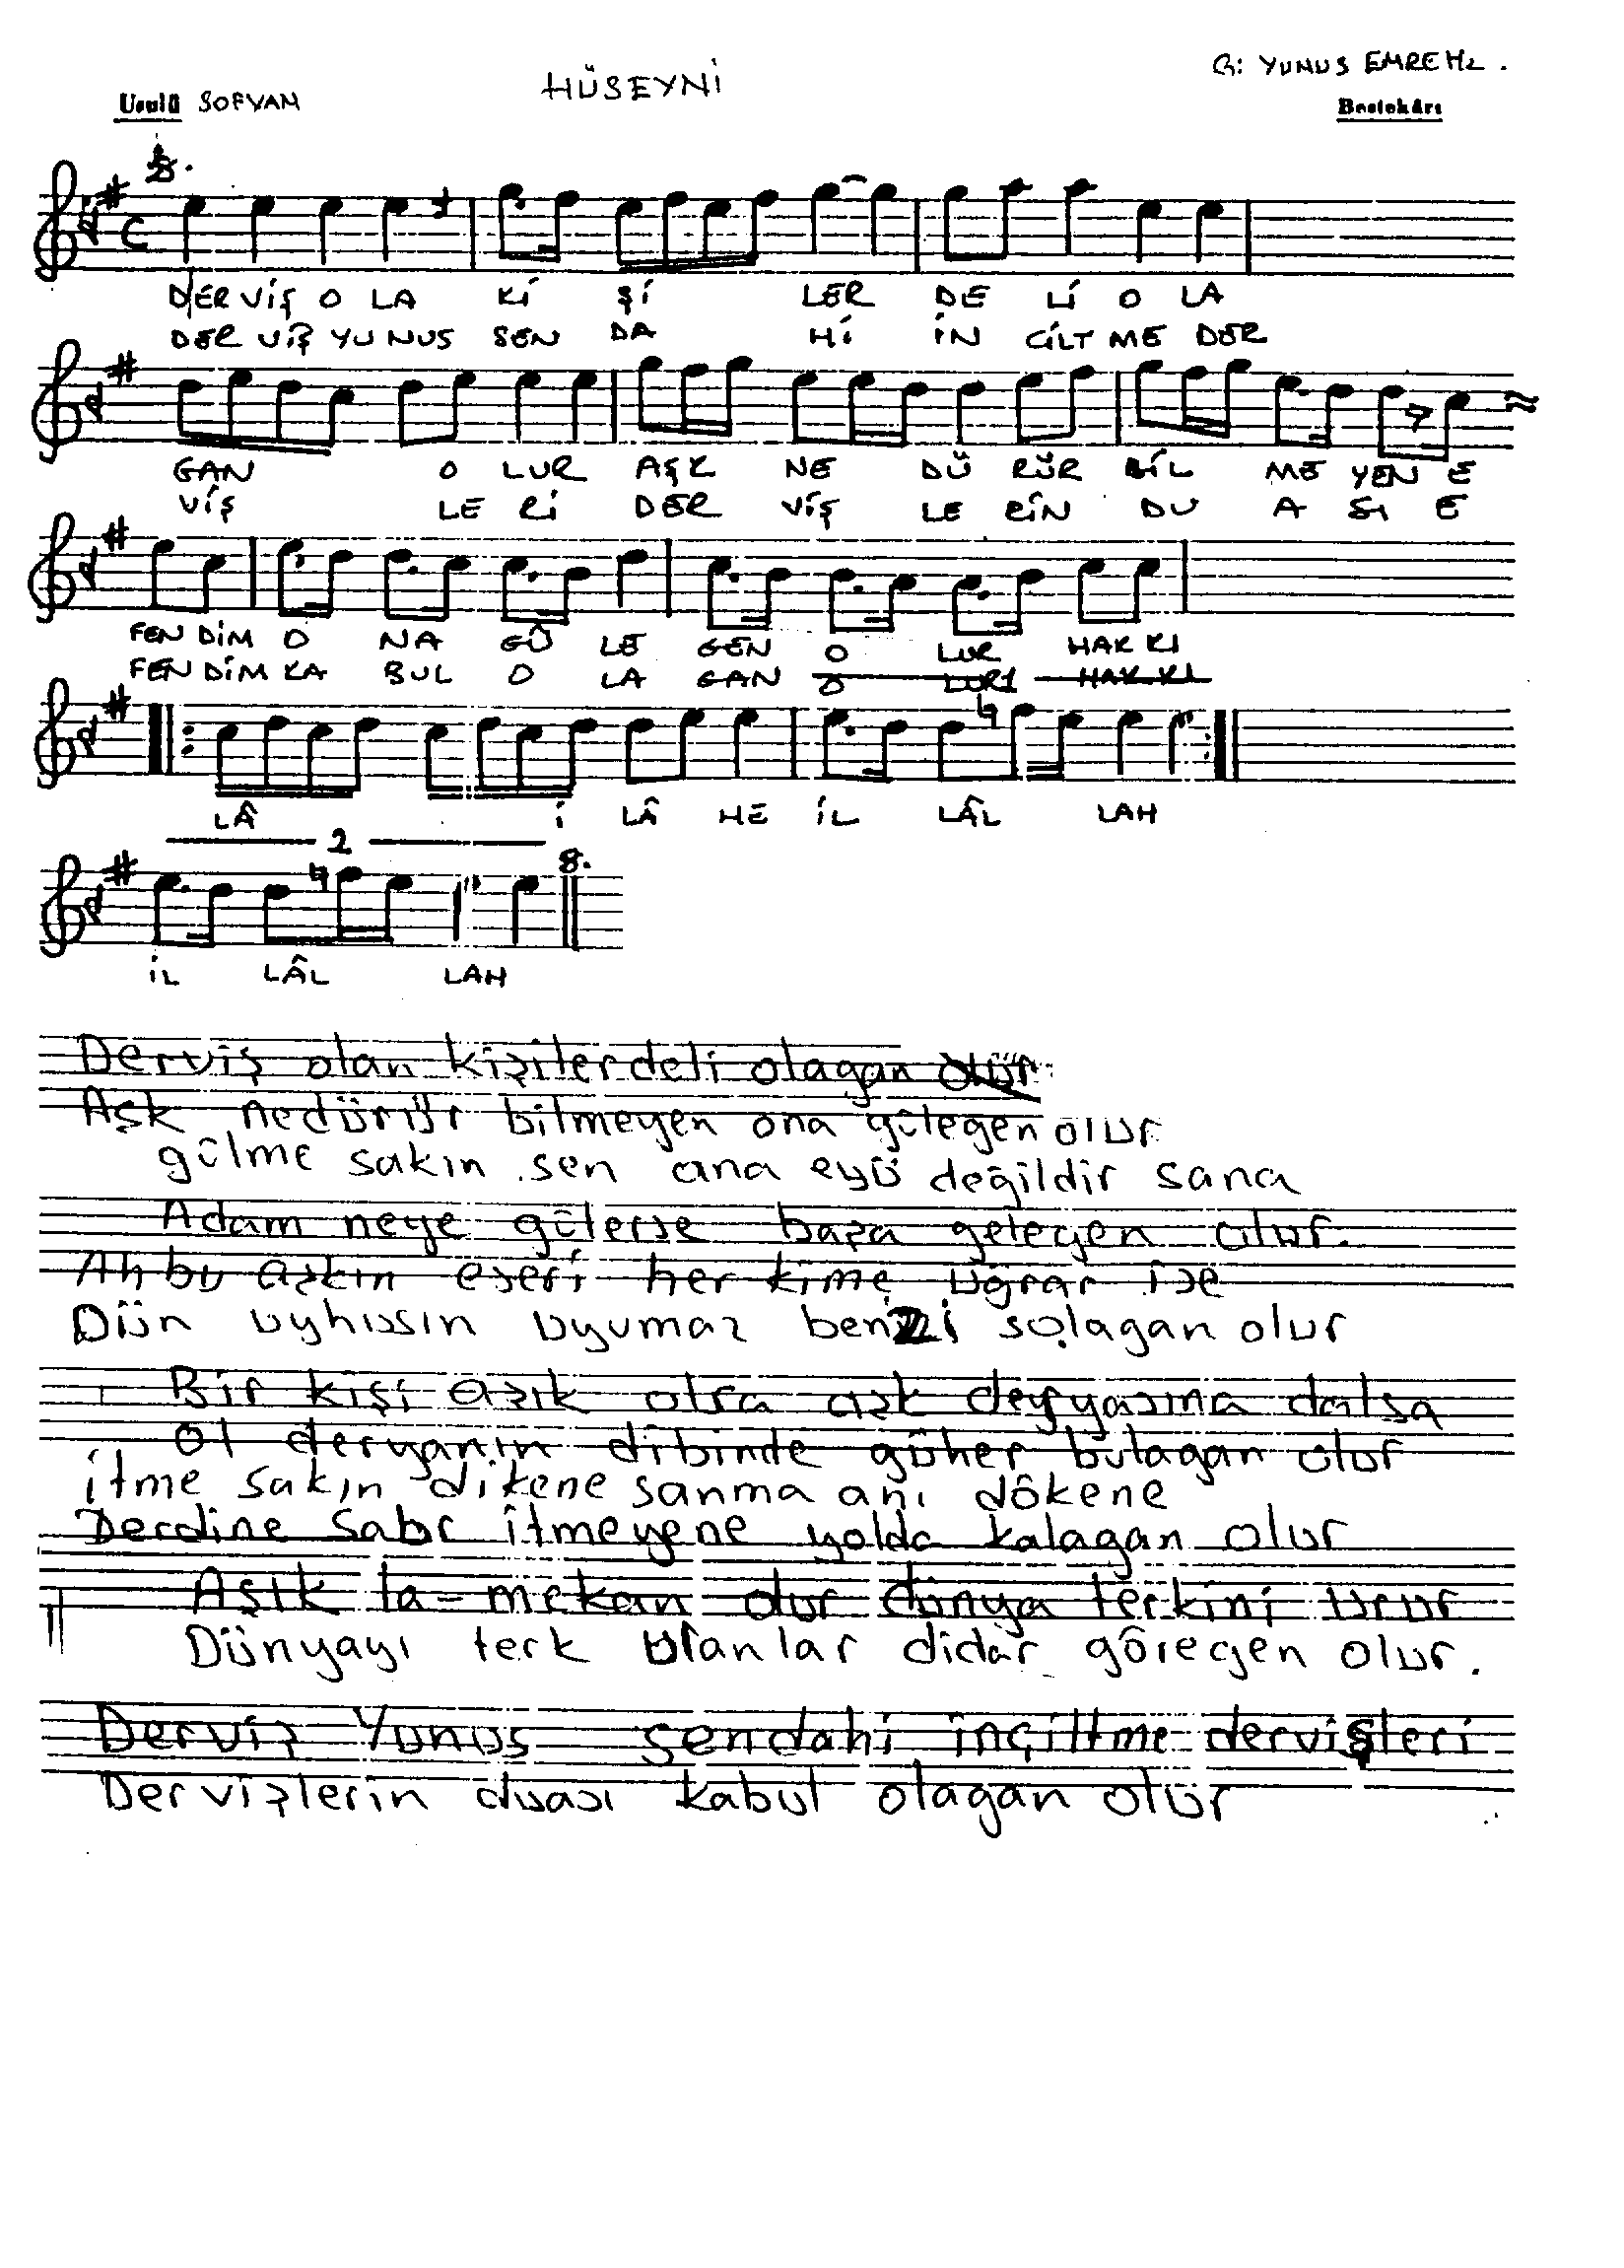 HÜSEYNİ
G: YUNUS EMRE Hz.
Usulü SOFYAN
Bestekârı
DER VİŞ O LA Kİ Şİ LER DE Lİ O LA
DER VİŞ YU NUS SEN DA Hİ İN CİLT ME DER
GAN O LUR AŞK NE DÜ RÜR BİL ME YEN E
VİŞ LE Rİ DER VİŞ LE RİN DU A SI E
FEN DİM O NA GÜ LE GEN O LUR HAK KI
FEN DİM KA BUL O LA GAN O LUR HAK KI
LÂ İ LÂ HE İL LÂL LAH
2
İL LÂL LAH
Derviş olan kişiler deli olagan olur
Aşk nedürür bilmeyen ona gülegen olur
gülme sakın sen ana eyü değildir sana
Adam neye gülerse başa gelegen olur.
Ah bu aşkın eseri her kime uğrar ise
Dün uyhusın uyumaz benzi solagan olur
Bir kişi aşık olsa aşk deryasına dalsa
Ol deryanın dibinde güher bulagan olur
itme sakın dikene sanma anı dökene
Derdine sabr itmeyene yolda kalagan olur
Aşık la-mekan olur dünya terkini urur
Dünyayı terk uranlar didar göregen olur.
Derviş Yunus sendahi inciltme dervişleri
Dervişlerin duası kabul olagan olur